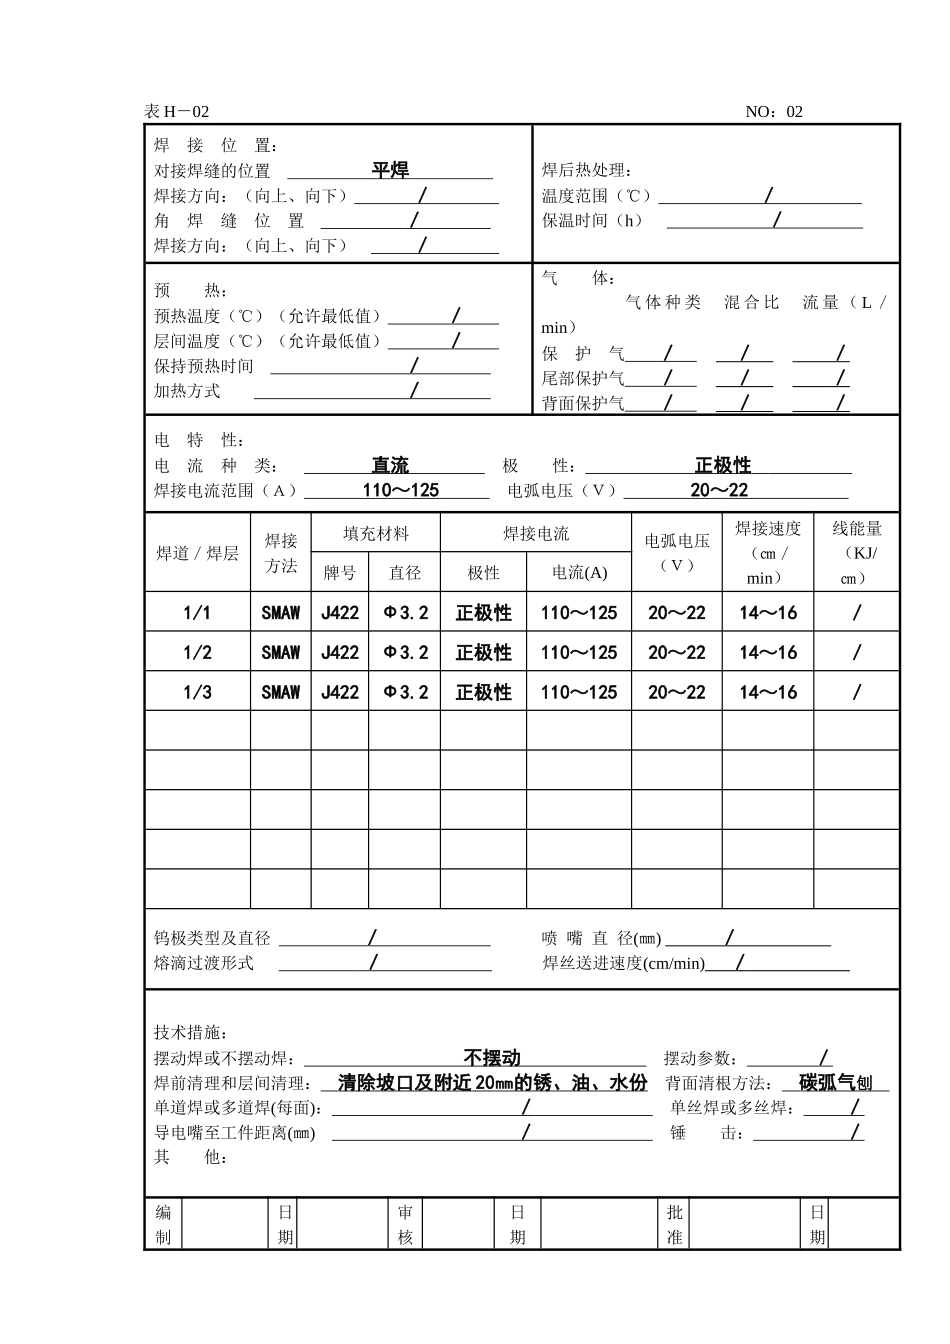 表 H－02 NO：02
焊 接 位 置：
对接焊缝的位置 平焊
焊接方向：（向上、向下） /
角 焊 缝 位 置 /
焊接方向：（向上、向下） /
焊后热处理：
温度范围（℃） /
保温时间（h） /
预 热：
预热温度（℃）（允许最低值） /
层间温度（℃）（允许最低值） /
保持预热时间 /
加热方式 /
气 体：
气体种类 混合比 流量（L／
min）
保 护 气 / / /
尾部保护气 / / /
背面保护气 / / /
电 特 性：
电 流 种 类： 直流 极 性： 正极性
焊接电流范围（A） 110～125 电弧电压（V） 20～22
焊道／焊层 焊接方法 填充材料 焊接电流 电弧电压（V） 焊接速度（㎝／min） 线能量（KJ/㎝）
牌号 直径 极性 电流(A)
1/1 SMAW J422 Φ3.2 正极性 110～125 20～22 14～16 /
1/2 SMAW J422 Φ3.2 正极性 110～125 20～22 14～16 /
1/3 SMAW J422 Φ3.2 正极性 110～125 20～22 14～16 /
钨极类型及直径 / 喷 嘴 直 径(㎜) /
熔滴过渡形式 / 焊丝送进速度(cm/min) /
技术措施：
摆动焊或不摆动焊： 不摆动 摆动参数： /
焊前清理和层间清理： 清除坡口及附近 20㎜的锈、油、水份 背面清根方法： 碳弧气刨
单道焊或多道焊(每面)： / 单丝焊或多丝焊： /
导电嘴至工件距离(㎜) / 锤 击： /
其 他：
编制 日期 审核 日期 批准 日期